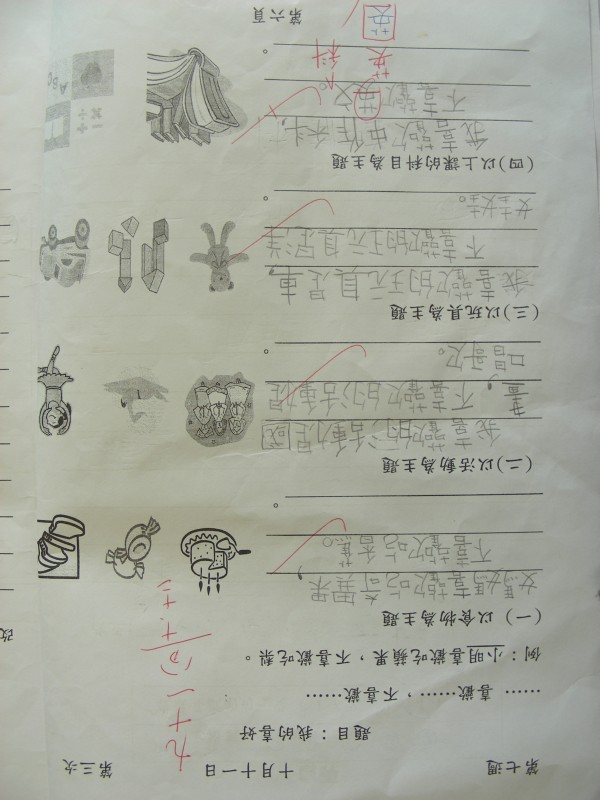 第七週 十月十一日 第三次
題目：我的喜好
……喜歡……，不喜歡……
例：小明喜歡吃蘋果，不喜歡吃梨。
九十一分
(一)以食物為主題
媽媽喜歡吃奇異果，
不喜歡吃香蕉。
(二)以活動為主題
我喜歡的活動是國
畫，不喜歡的活動是
唱歌。
(三)以玩具為主題
我喜歡的玩具是車，
不喜歡的玩具是洋
娃娃。
(四)以上課的科目為主題
我喜歡中作科，
不喜歡英文。
英 科
英
ABC
第六頁
改